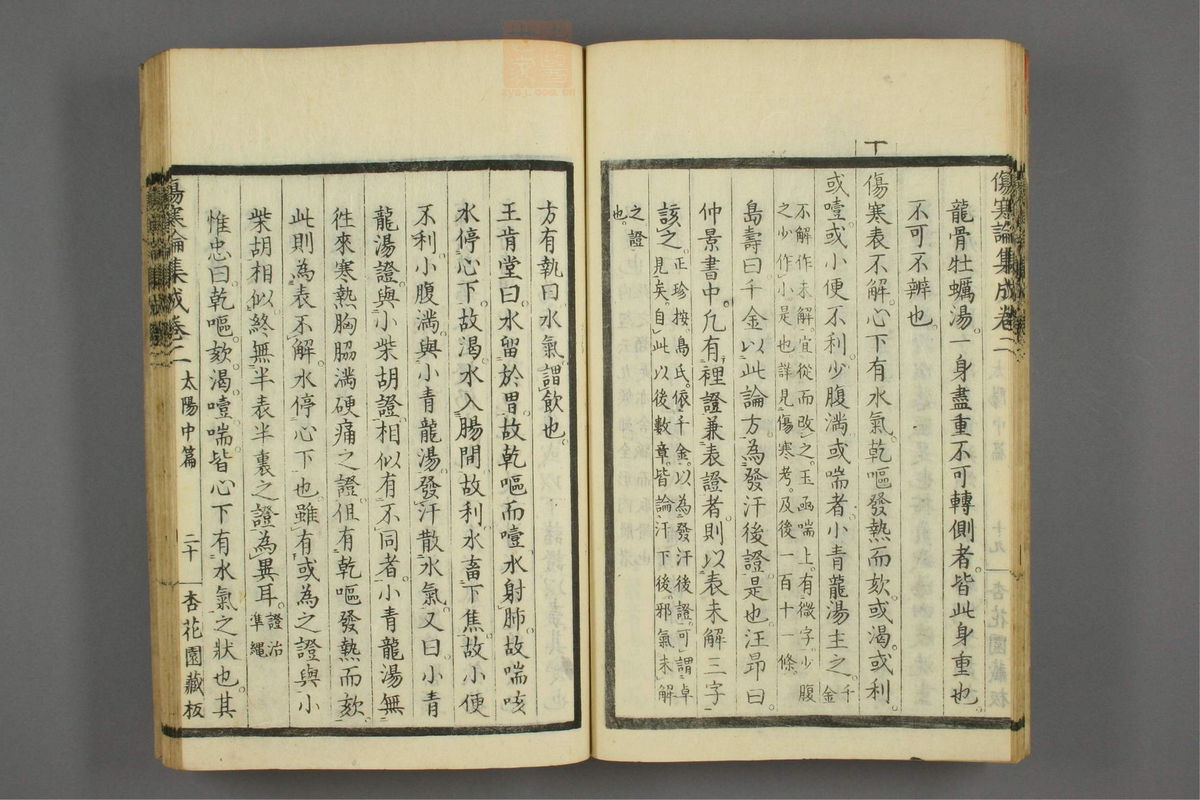 傷寒論集成卷二
龍骨牡蠣湯。一身盡重不可轉側者。皆此身重也。
不可不辨也。
傷寒表不解。心下有水氣。乾嘔發熱而欬。或渴。或利
或噎。或小便不利。少腹滿。或喘者。小青龍湯主之。千金
不解作未解。宜從而改之。玉函喘上。有微字。少腹
之少。作小。是也。詳見傷寒考。及後一百十一條。
島壽曰。千金以此論方。為發汗後證。是也。汪昂曰。
仲景書中。凡有裡證兼表證者。則以表未解三字
該之。正珍按。島氏。依千金。以為發汗後證。可謂卓
見矣。自此以後數章。皆論汗下後。邪氣未解
之證
也。
方有執曰。水氣。謂飲也。
王肯堂曰。水留於胃。故乾嘔而噎。水射肺。故喘咳
水停心下。故渴。水入腸間。故利。水畜下焦。故小便
不利。小腹滿。與小青龍湯。發汗散水氣。又曰。小青
龍湯證。與小柴胡證。相似有不同者。小青龍湯無
往來寒熱胸脇滿硬痛之證。但有乾嘔發熱而欬。
此則為表不解。水停心下也。雖有或為之證。與小
柴胡相似。終無半表半裏之證。為異耳。證治
準繩
惟忠曰。乾嘔。欬。渴。噎。喘。皆心下有水氣之狀也。其
傷寒論集成卷二 太陽中篇 二十 杏花園藏板